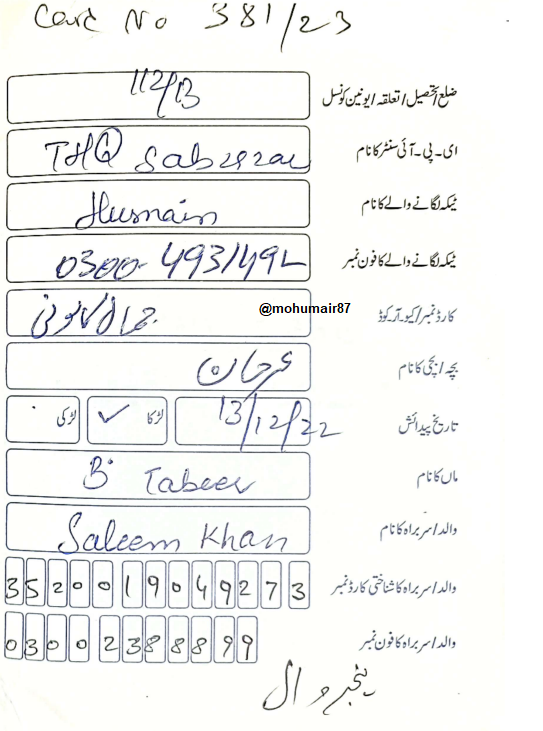 Card No 381/23
ضلع/تحصیل/تعلقہ/یونین کونسل 112/13
ای۔پی۔آئی سنٹر کا نام THQ Sabzazar
ٹیکہ لگانے والے کا نام Husnain
ٹیکہ لگانے والے کا فون نمبر 0300-493149
@mohumair87
کارڈ نمبر/کیو۔آر۔کوڈ
بچہ/بچی کا نام
تاریخ پیدائش 13/12/22 لڑکا ✓ لڑکی
ماں کا نام B. Tabeer
والد/سربراہ کا نام Saleem Khan
والد/سربراہ کا شناختی کارڈ نمبر 3520019049273
والد/سربراہ کا فون نمبر 03002388899